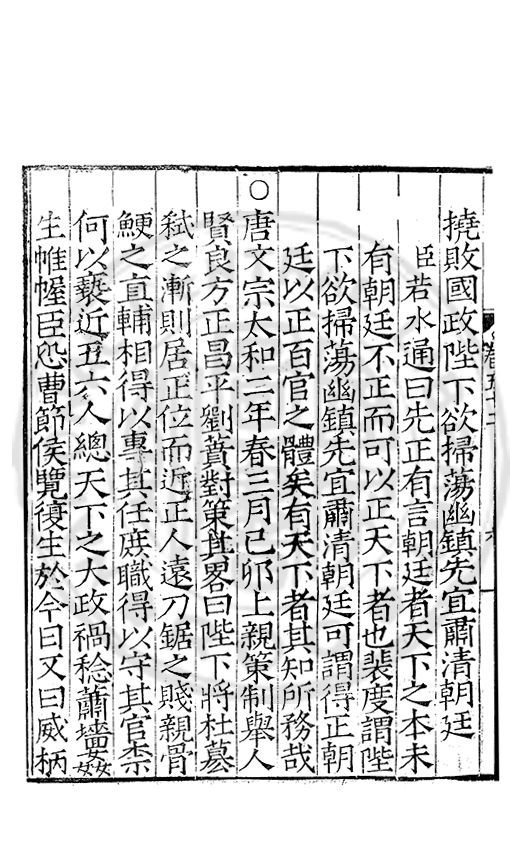 撓敗國政陛下欲掃蕩幽鎮先宜肅清朝廷
臣若水通曰先正有言朝廷者天下之本未
有朝廷不正而可以正天下者也裴度謂陛
下欲掃蕩幽鎮先宜肅清朝廷可謂得正朝
廷以正百官之體矣有天下者其知所務哉
○唐文宗太和二年春三月己卯上親策制舉人
賢良方正昌平劉蕡對策其畧曰陛下將杜篡
弒之漸則居正位而近正人遠刀鋸之賤親骨
鯁之直輔相得以專其任庶職得以守其官柰
何以褻近五六人總天下之大政禍稔蕭墻姦
生帷幄臣恐曹節侯覽復生於今日又曰威柄
卷五十二